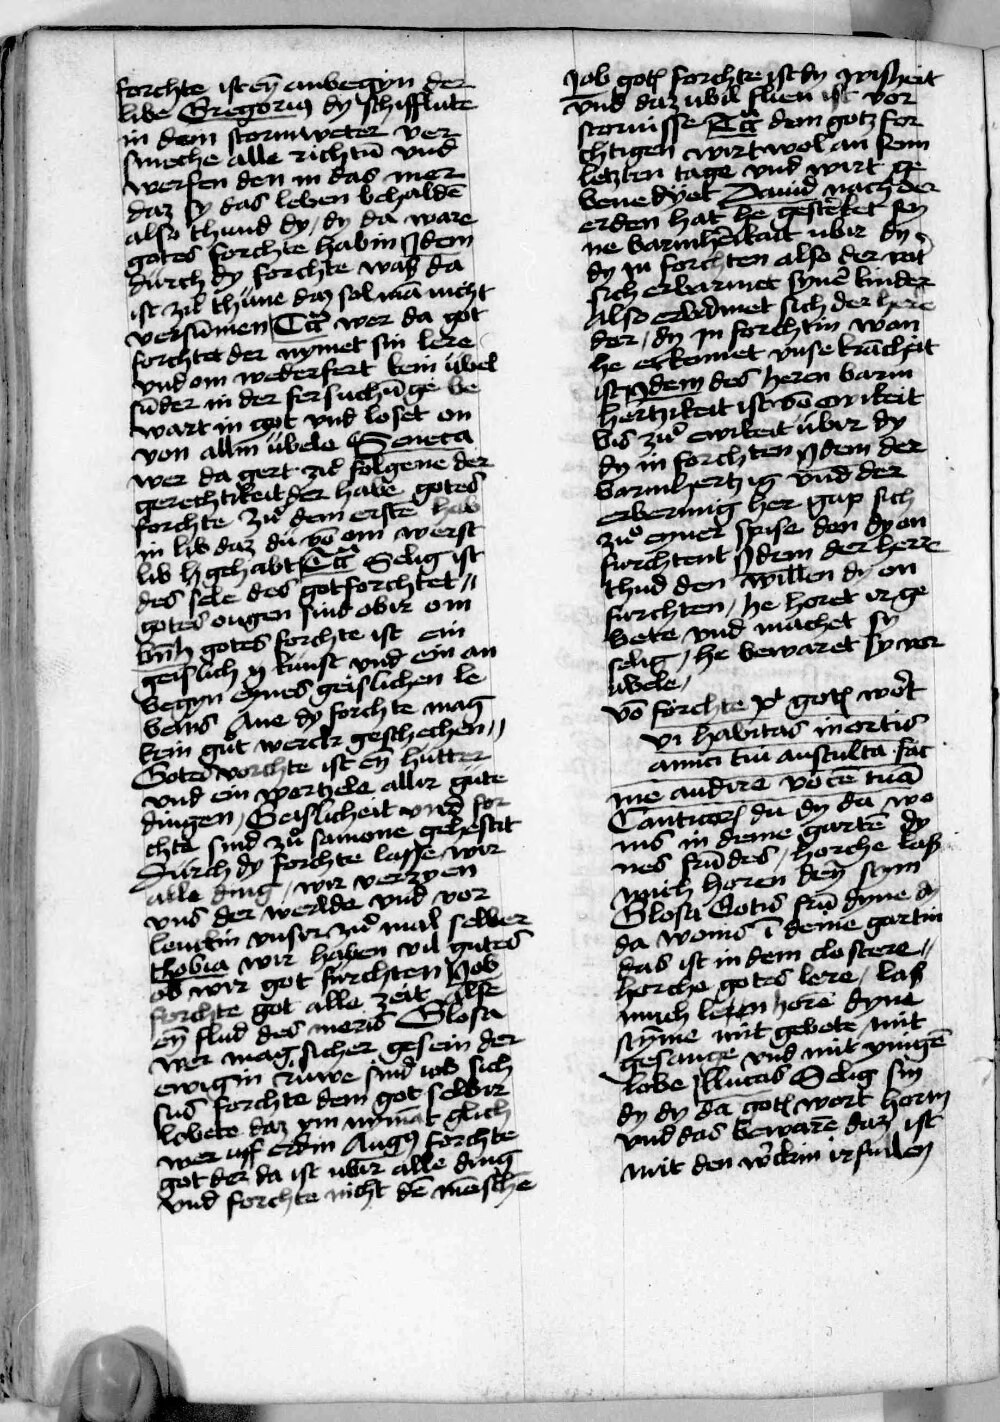 forchte ist eỹ anbegyn der
libe Gregoriꝰ dy schifflute
in dem stormweter ver
smehe alle richtũ vnd
werfen den in das mer
daz sy das leben behaldẽ
also thund dy / dy da ware
gotes forchte habin Jdem
durch dy forchte waß da
ist zuͦ thune daz sol mã nicht
versũmen Ecc̃ wer da got
forchtet der nymet sin lere
vnd om wederfert kein ubel
sũder in der fersuchũge be
wart in got vnd loset on
von allin ubele Seneca
wer da gert zuͦ folgene der
gerechtikeit der habe gotes
forchte zuͦ dem erste hab
in lib daz du võ om werst
lib gehabt Ecc̃ Selig ist
des sele des got forchtet //
gotes ougen sind obir om
gotes forchte ist ein
geislich kunst vnd ein an
begyn eynes geislichen le
bens Ane dy forchte mag
kein gut werck geschechen //
Gotes vorchte ist eỹ hutter
vnd ein wortzele allir gute
dingen / Geislicheit vnd for
chte sind zuͦ samone gehestit
Durch dy forchte lasse wir
alle ding / wir verzyen
vns der werlde vnd vor
leucktin vnser zuͦ mal selber
thobia wir haben vil gutes
ob wir got furchten Job
forchte got alle zeit alse
eỹ flud des meris Glosa
wer mag sicher gesein der
ewigin ruwe sind iob sich
sus forchte dem got selbir
lobete daz ym nymãt glich
wer uff erdin Augꝰ forchte
got der da ist ubir alle ding
vnd forchte nicht dẽ mẽsche
Job gotʒ forchte ist dy wisheit
vnd daz ubil flien ist vor
stornisse Ecc̃ dem gotz for
chtigen wirt wol an sem
letzten tage vnd wirt ge
benedyet Dauid nach der
erden hat he gesterket sy
ne barmhertikait ubir dy
dy in forchten also der vat
sich erbarmet syner kinder
Also erbarmet sich der here
der / dy in forchtin wan
he erkennet vnse krãcheit
ist Jdem des heren barm
hertzikeit ist võ ewikeit
bis zuͦ ewikeit ubir dy
dy in forchten Jdem der
barmhertzig vnd der
erbermig her gap sich
zuͦ eyner spise den dy on
furchtent Jdem der herre
thud den willen dy on
furchten / he horet ir ge
bete vnd machet sy
selig / he bewaret sy vor
ubele /
võ forchte gotʒ wort
vi habitas in ortis
amici tui ausculta fac
me audire vocẽ tuã
Canticorʒ du dy da wo
nis in deme gartẽ dy
nes frũdes / horche las
mich horen dey̆ stym
Glosa Cotis frũ dyme dy
da wonis ĩ deme gartin
das ist in dem clostere //
horche gotes lere / las
mich leten horẽ dyne
stỹme mit gebote / mit
gesange vnd mit ynigẽ
lobe Lucas Selig sin
dy dy da gotʒ wort horin
vnd das bewarẽ daz ist
mit den w̉ckin irfullen